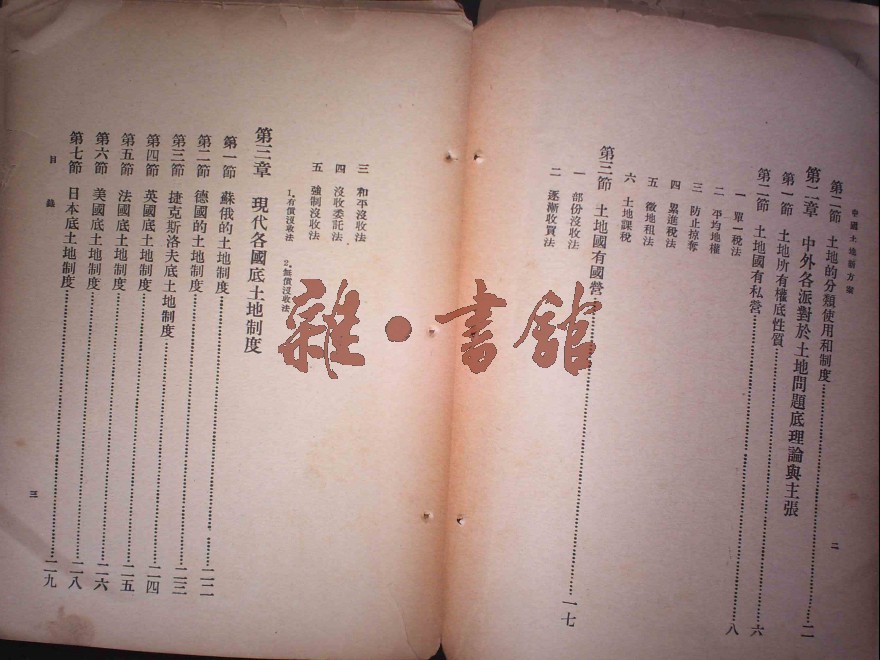 中國土地新方案
二
第二節 土地的分類使用和制度……二
第二章 中外各派對於土地問題底理論與主張
第一節 土地所有權底性質……六
第二節 土地國有私營……八
一 單一稅法
二 平均地權
三 防止掠奪
四 累進稅法
五 徵地租法
六 土地課稅
第三節 土地國有國營……一七
一 部份沒收法
二 逐漸收買法
三 和平沒收法
四 沒收委託法
五 強制沒收法
1.有價沒收法 2.無價沒收法
第三章 現代各國底土地制度
第一節 蘇俄的土地制度……二二
第二節 德國的土地制度……二三
第三節 捷克斯洛夫底土地制度……二三
第四節 英國底土地制度……二四
第五節 法國底土地制度……二五
第六節 美國底土地制度……二六
第七節 日本底土地制度……二九
目錄
三
雜·書館